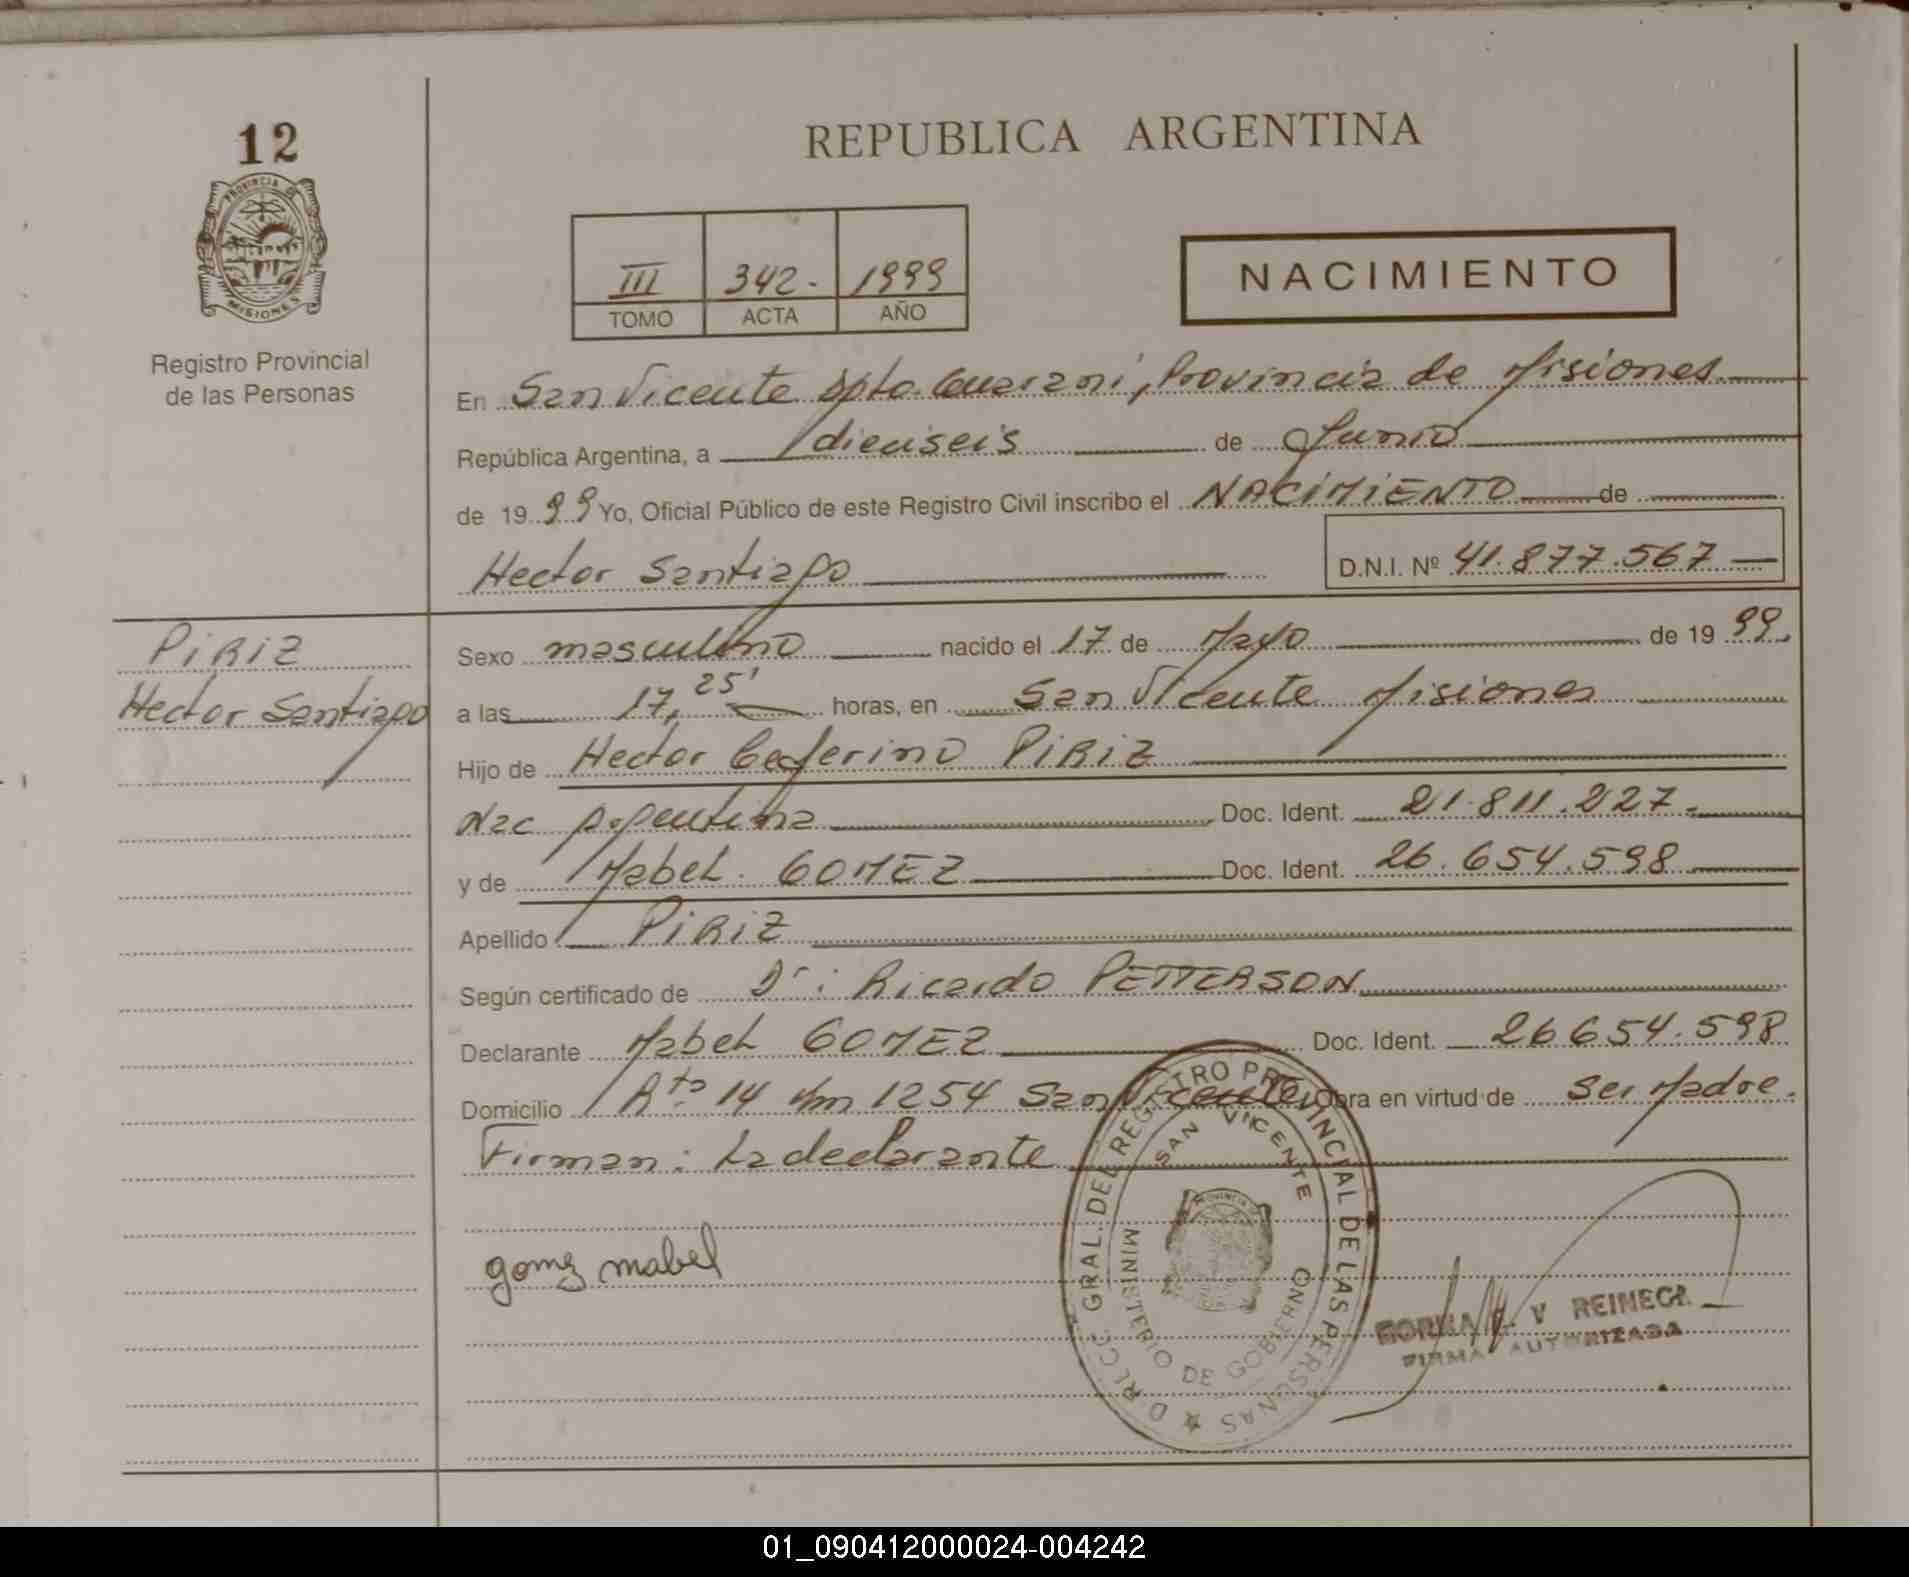 12
PROVINCIA DE
MISIONES
Registro Provincial
de las Personas
REPUBLICA ARGENTINA
III 342.- 1999
TOMO ACTA AÑO
NACIMIENTO
En San Vicente Dpto. Guarani, Provincia de Misiones
República Argentina, a dieciseis de Junio
de 1999 Yo, Oficial Público de este Registro Civil inscribo el NACIMIENTO de
Hector Santiago D.N.I. Nº 41.877.567
PIRIZ
Hector Santiago
Sexo masculino nacido el 17 de Mayo de 1999.
a las 17,25' horas, en San Vicente Misiones
Hijo de Hector Ceferino PIRIZ
Nac Argentina Doc. Ident. 21.811.227.-
y de Mabel GOMEZ Doc. Ident. 26.654.598
Apellido PIRIZ
Según certificado de Dr: Ricardo PETTERSON
Declarante Mabel GOMEZ Doc. Ident. 26654.598
Domicilio Rta 14 Km 1254 San Vicente, Obra en virtud de ser Madre.
Firman: La declarante
gomez mabel
DIRECC. GRAL. DEL REGISTRO PROVINCIAL DE LAS PERSONAS
SAN VICENTE
MINISTERIO DE GOBIERNO
V REINECK
FIRMA AUTORIZADA
01_090412000024-004242